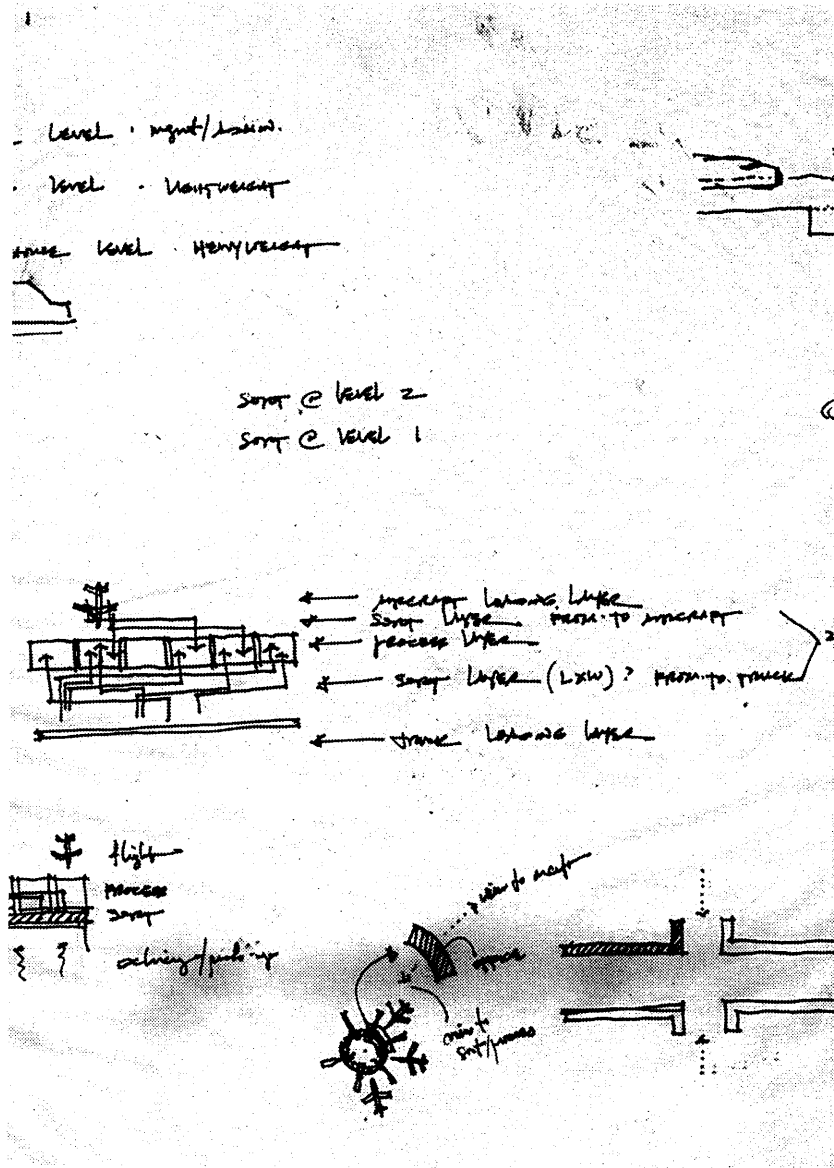 LEVEL . mgmt/
LEVEL . LIGHTWEIGHT
LEVEL . HEAVYWEIGHT
SORT @ LEVEL 2
SORT @ LEVEL 1
AIRCRAFT LOADING LAYER
SORT LAYER FROM.TO AIRCRAFT
PROCESS LAYER
SORT LAYER (LXW)? FROM.TO.TRUCK
TRUCK LOADING LAYER
flight
PROCESS
SORT
delivery/pick-up
view to
view to
sort/process